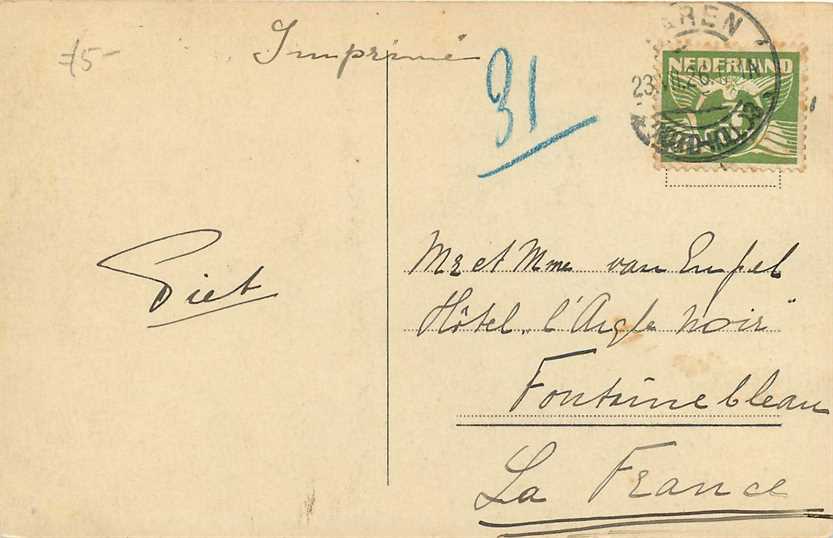 75-
Imprimé
31
NEDERLAND
Piet
Mr et Mme van Engel
Hôtel „l'Aigle noir"
Fontainebleau
La France